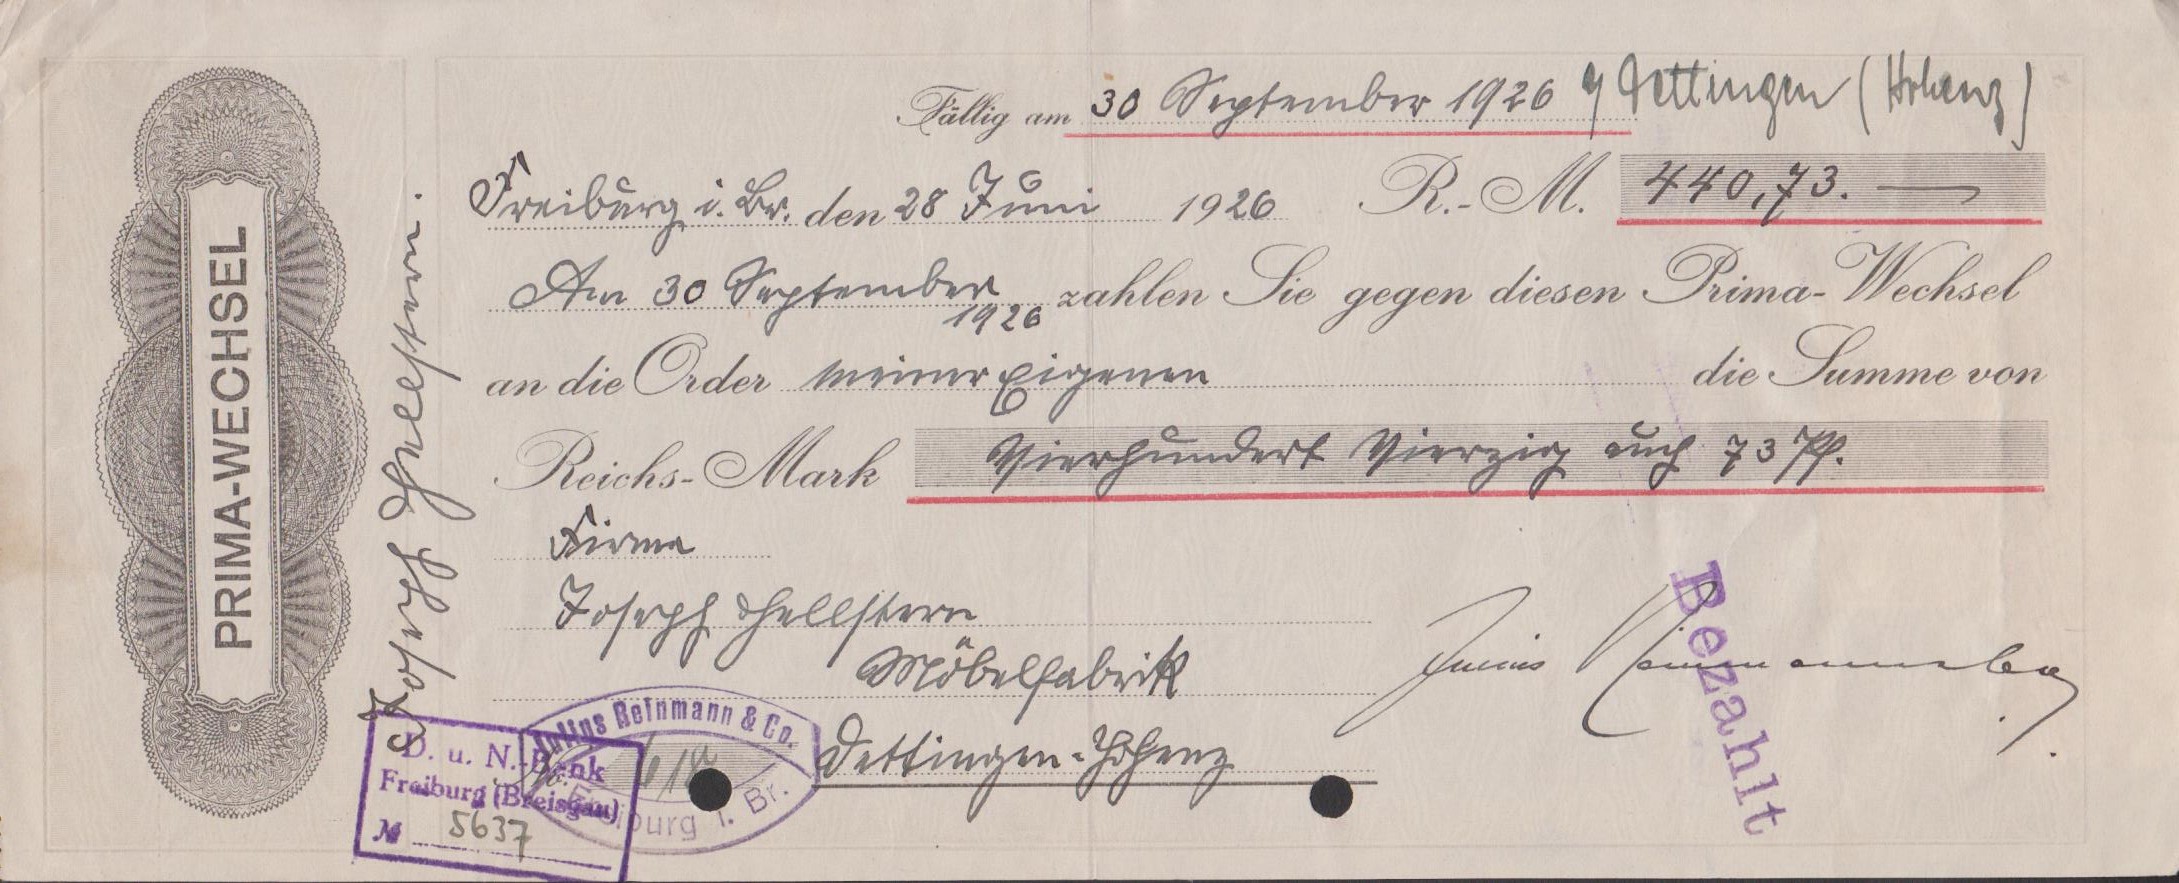 Fällig am 30 September 1926 Dettingen (Hohenz)
Freiburg i. Br. den 28 Juni 1926 R.-M. 440,73.
Am 30 September 1926 zahlen Sie gegen diesen Prima-Wechsel
an die Order meiner Eigenen die Summe von
Reichs-Mark Vierhundert Vierzig auch 73 Pf.
Firma
Joseph Hellstern
Möbelfabrik
Dettingen-Hohenz
PRIMA-WECHSEL
Joseph Hellstern.
Julius
Bezahlt
Julius Reinmann & Co.
Freiburg i. Br.
D. u. N.-Bank
Freiburg (Breisgau)
№ 5637